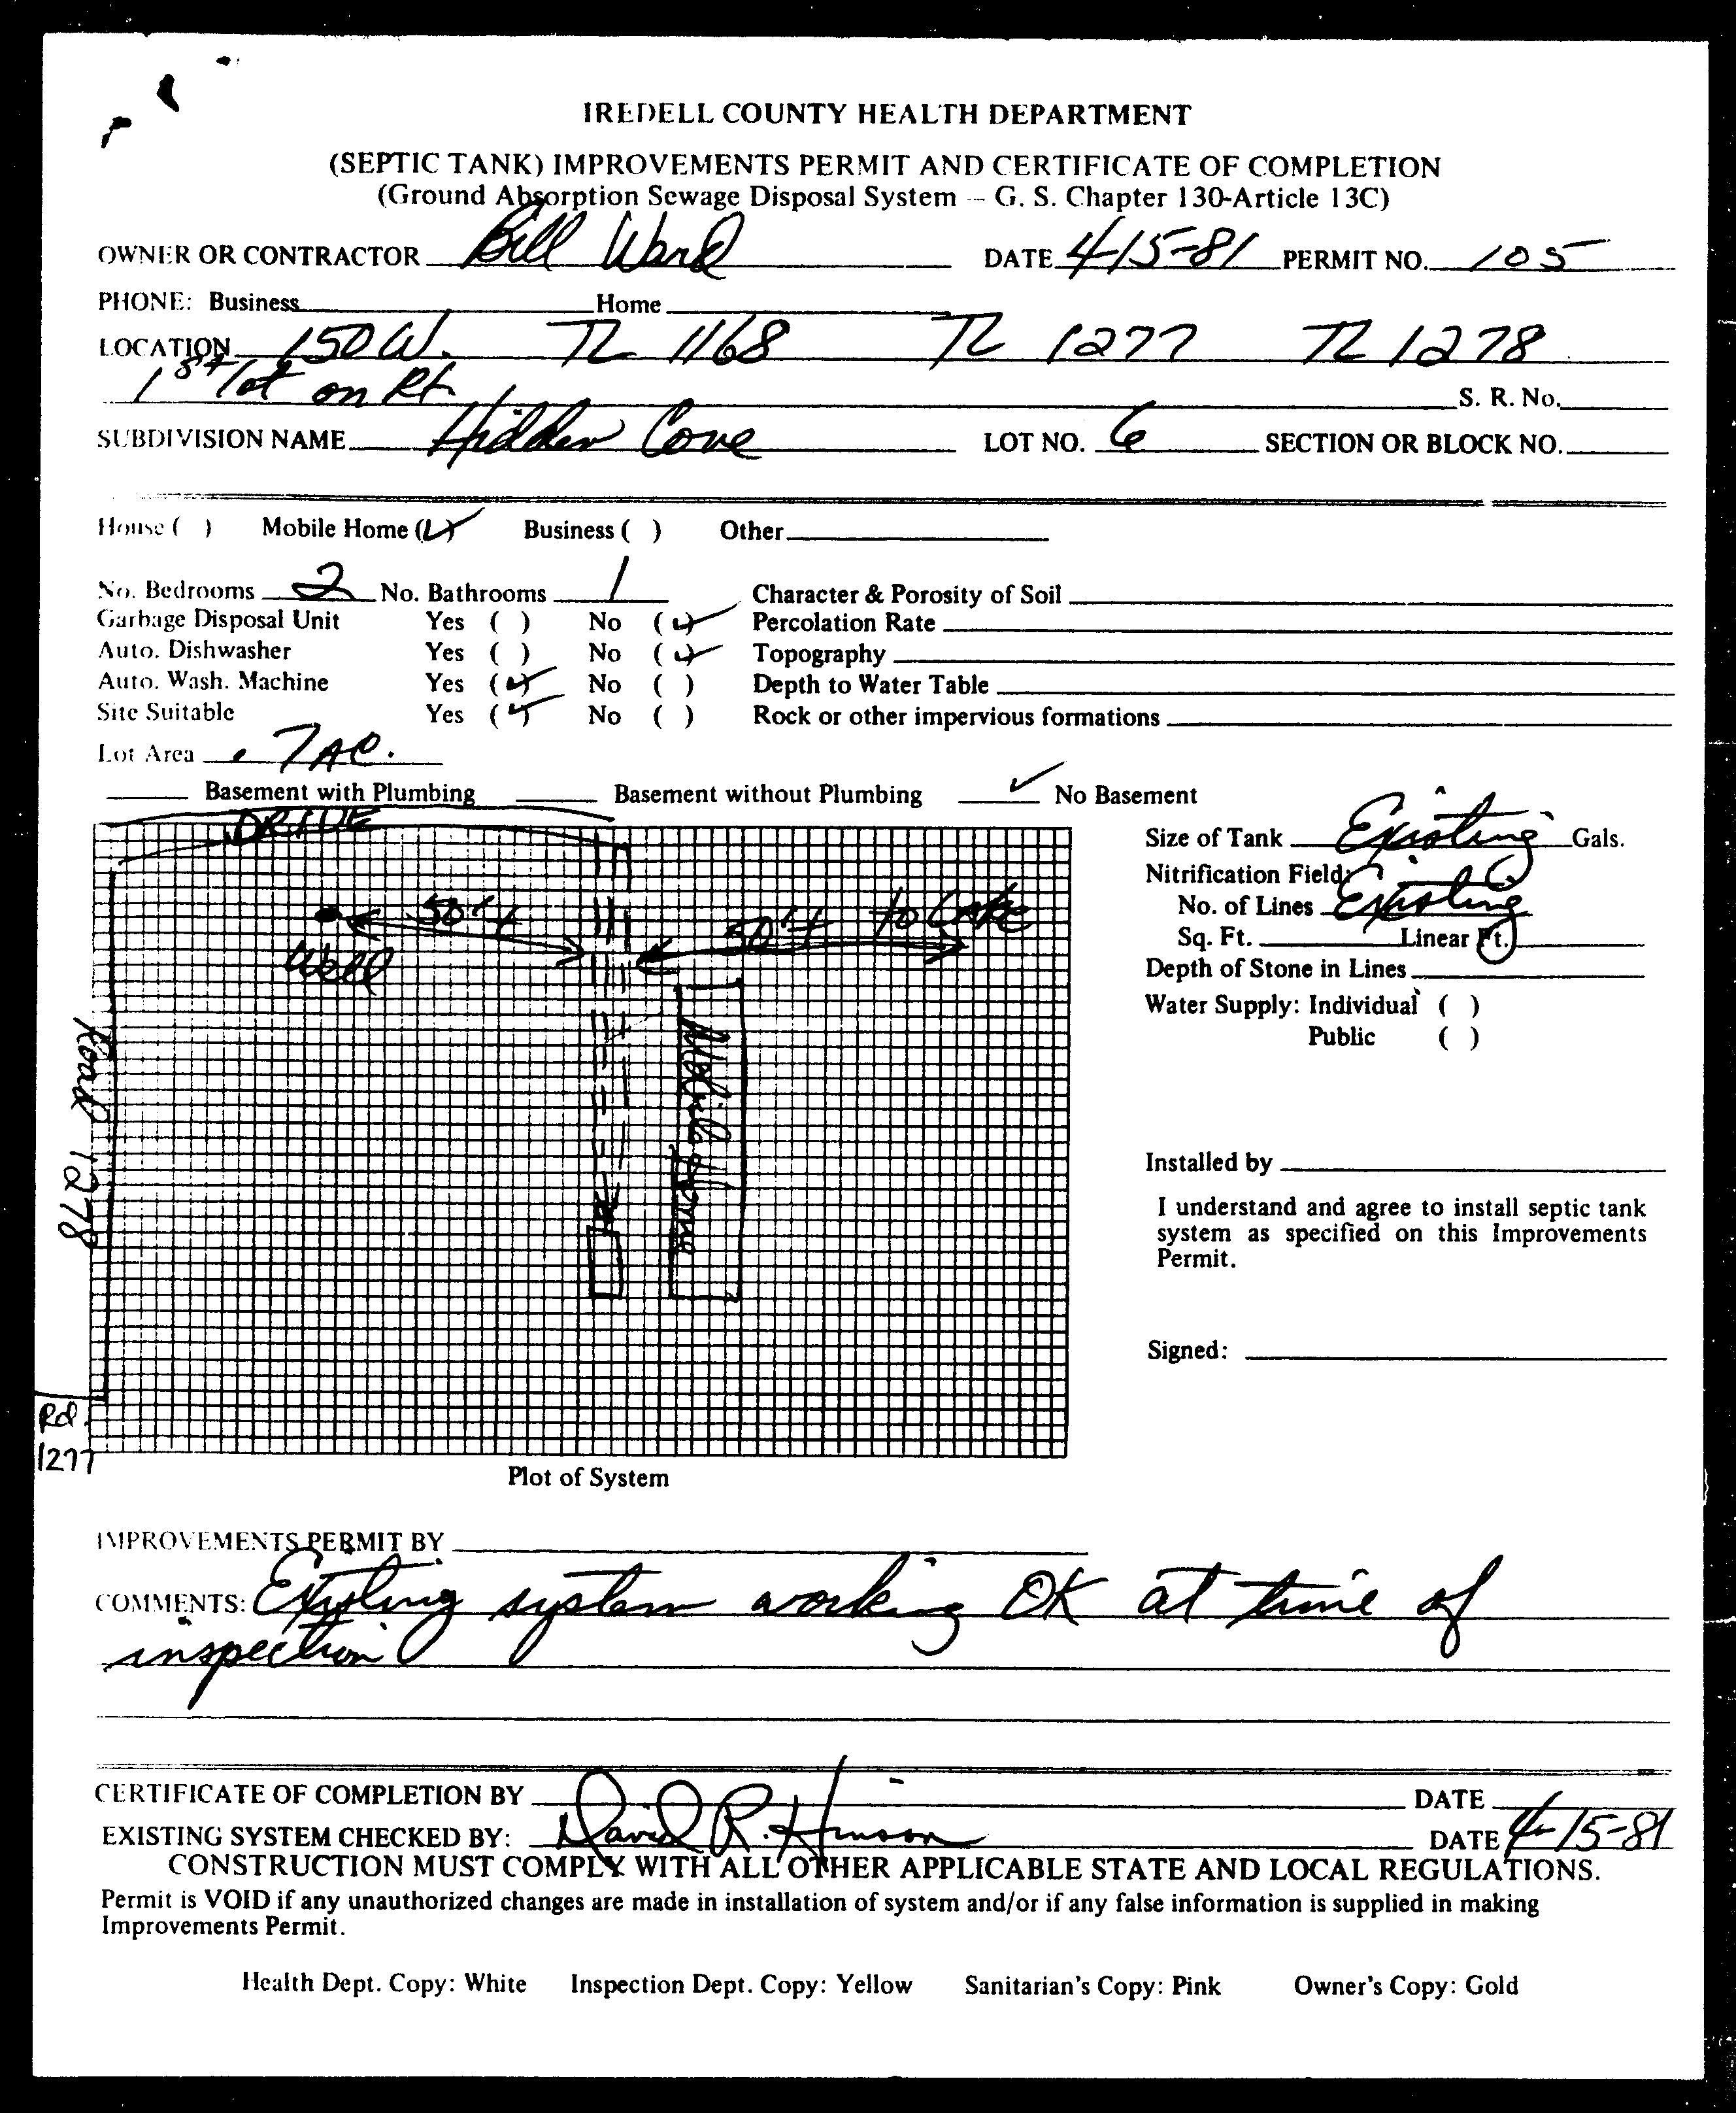 IREDELL COUNTY HEALTH DEPARTMENT
(SEPTIC TANK) IMPROVEMENTS PERMIT AND CERTIFICATE OF COMPLETION
(Ground Absorption Sewage Disposal System -- G. S. Chapter 130-Article 13C)
OWNER OR CONTRACTOR Bill Ward DATE 4-15-81 PERMIT NO. 105
PHONE: Business Home
LOCATION 150 W. TL 1168 TL 1277 TL 1278
1st lot on Rt. S. R. No.
SUBDIVISION NAME Hidden Cove LOT NO. 6 SECTION OR BLOCK NO.
House ( ) Mobile Home (✓) Business ( ) Other
No. Bedrooms 2 No. Bathrooms 1 Character & Porosity of Soil
Garbage Disposal Unit Yes ( ) No (✓) Percolation Rate
Auto. Dishwasher Yes ( ) No (✓) Topography
Auto. Wash. Machine Yes (✓) No ( ) Depth to Water Table
Site Suitable Yes (✓) No ( ) Rock or other impervious formations
Lot Area .7 AC.
Basement with Plumbing Basement without Plumbing ✓ No Basement
DRIVE
50'+
Well
50'+ to Lake
Mobile Home
Road 1278
Rd. 1277
Plot of System
Size of Tank Existing Gals.
Nitrification Field:
No. of Lines Existing
Sq. Ft. Linear Ft.
Depth of Stone in Lines
Water Supply: Individual ( )
Public ( )
Installed by
I understand and agree to install septic tank
system as specified on this Improvements
Permit.
Signed:
IMPROVEMENTS PERMIT BY
COMMENTS: Existing system working OK at time of
inspection
CERTIFICATE OF COMPLETION BY DATE
EXISTING SYSTEM CHECKED BY: David R. Hinson DATE 4-15-81
CONSTRUCTION MUST COMPLY WITH ALL OTHER APPLICABLE STATE AND LOCAL REGULATIONS.
Permit is VOID if any unauthorized changes are made in installation of system and/or if any false information is supplied in making
Improvements Permit.
Health Dept. Copy: White Inspection Dept. Copy: Yellow Sanitarian's Copy: Pink Owner's Copy: Gold